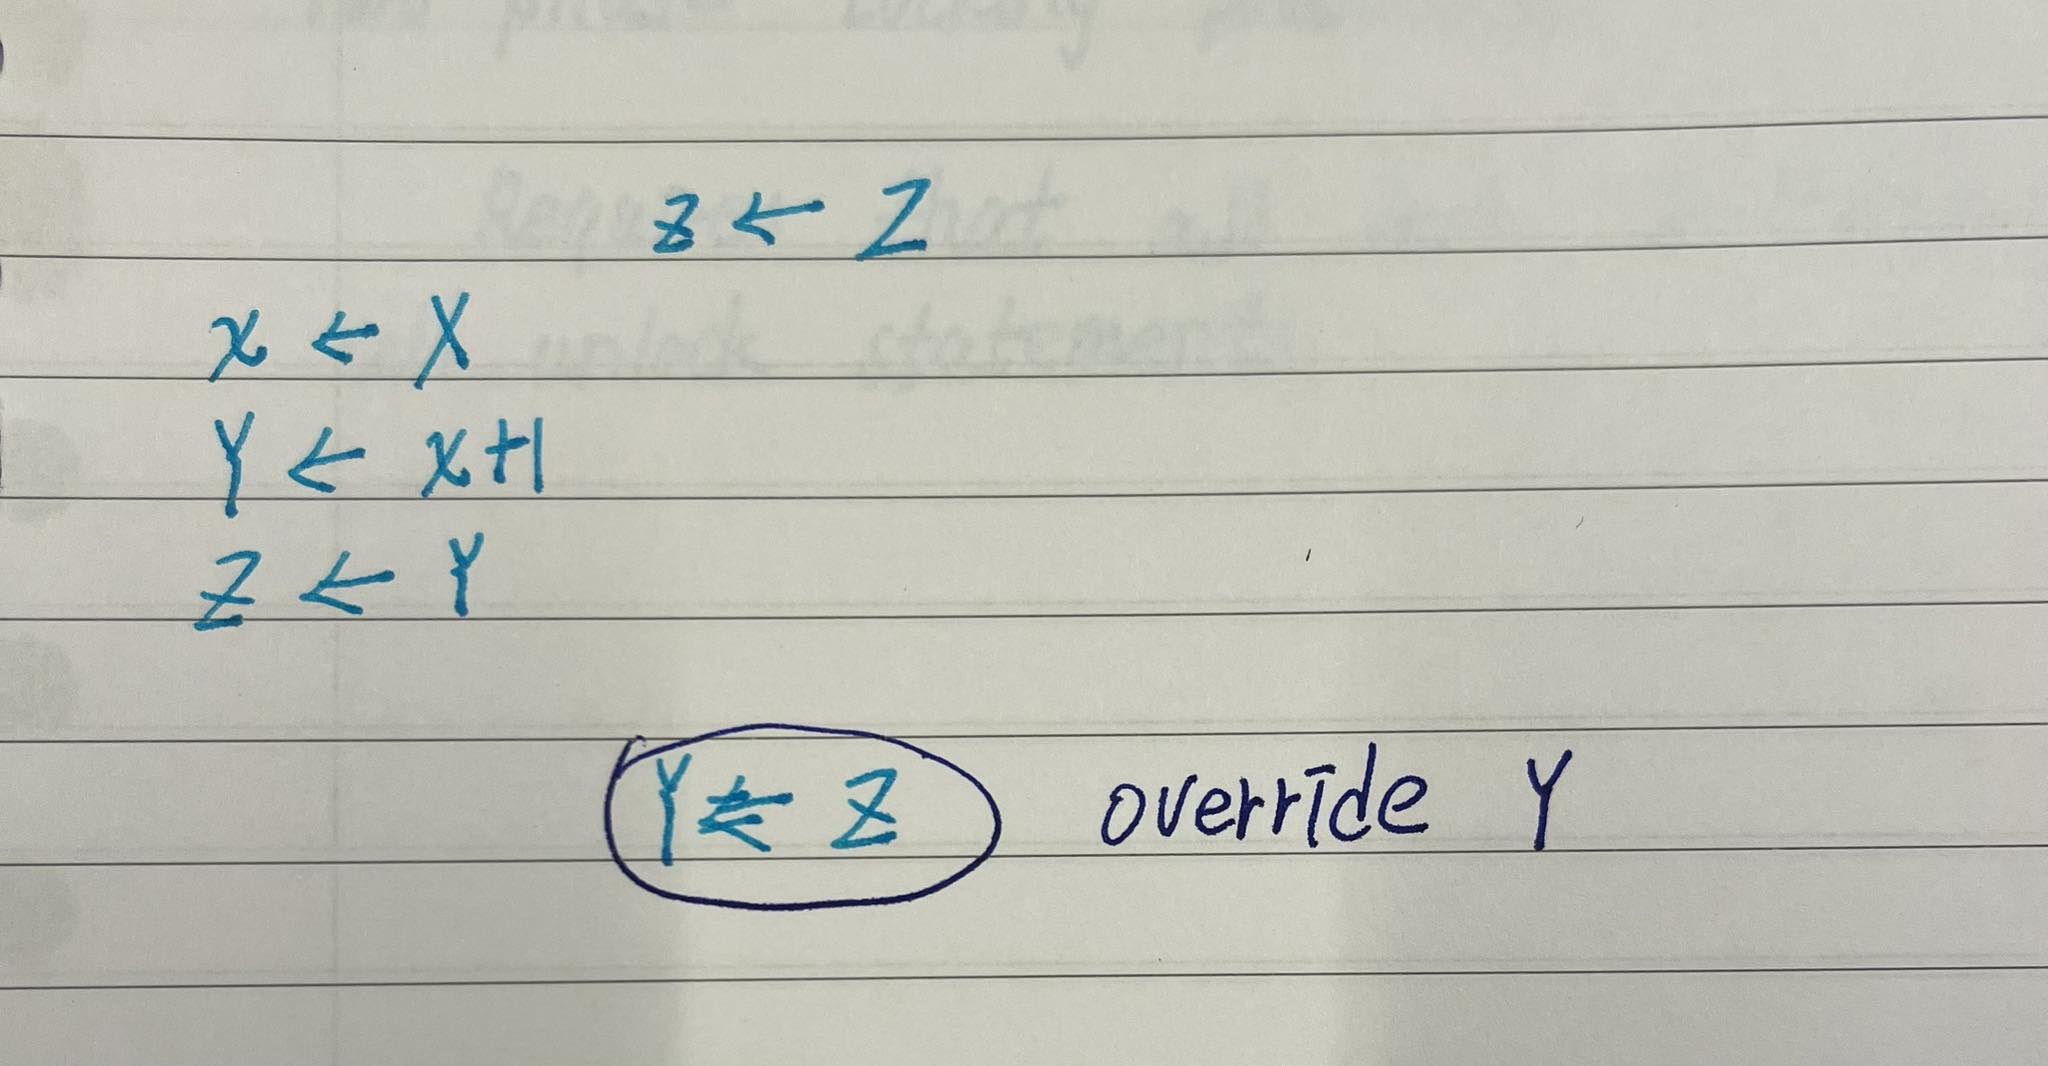 z ← Z
x ← X
Y ← x+1
Z ← Y
Y ← Z override Y